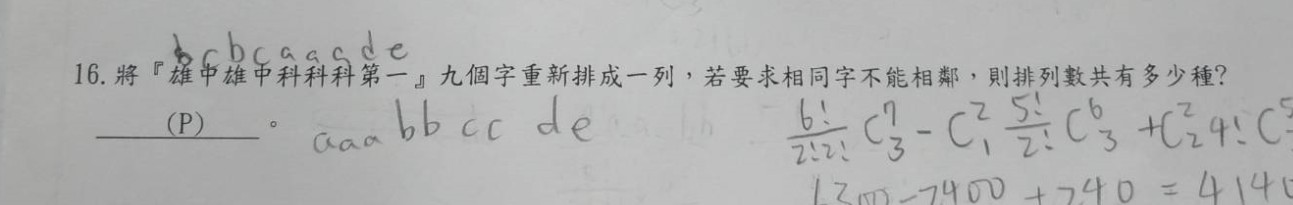 b c b c a a a d e
16. 將『雄中雄中科科科第一』九個字重新排成一列，若要求相同字不能相鄰，則排列數共有多少種?
(P) 。 aaa bb cc de 6!/2!2! C⁷₃ - C²₁ 5!/2! C⁶₃ + C²₂ 4! C⁵
6300 - 2400 + 240 = 4140